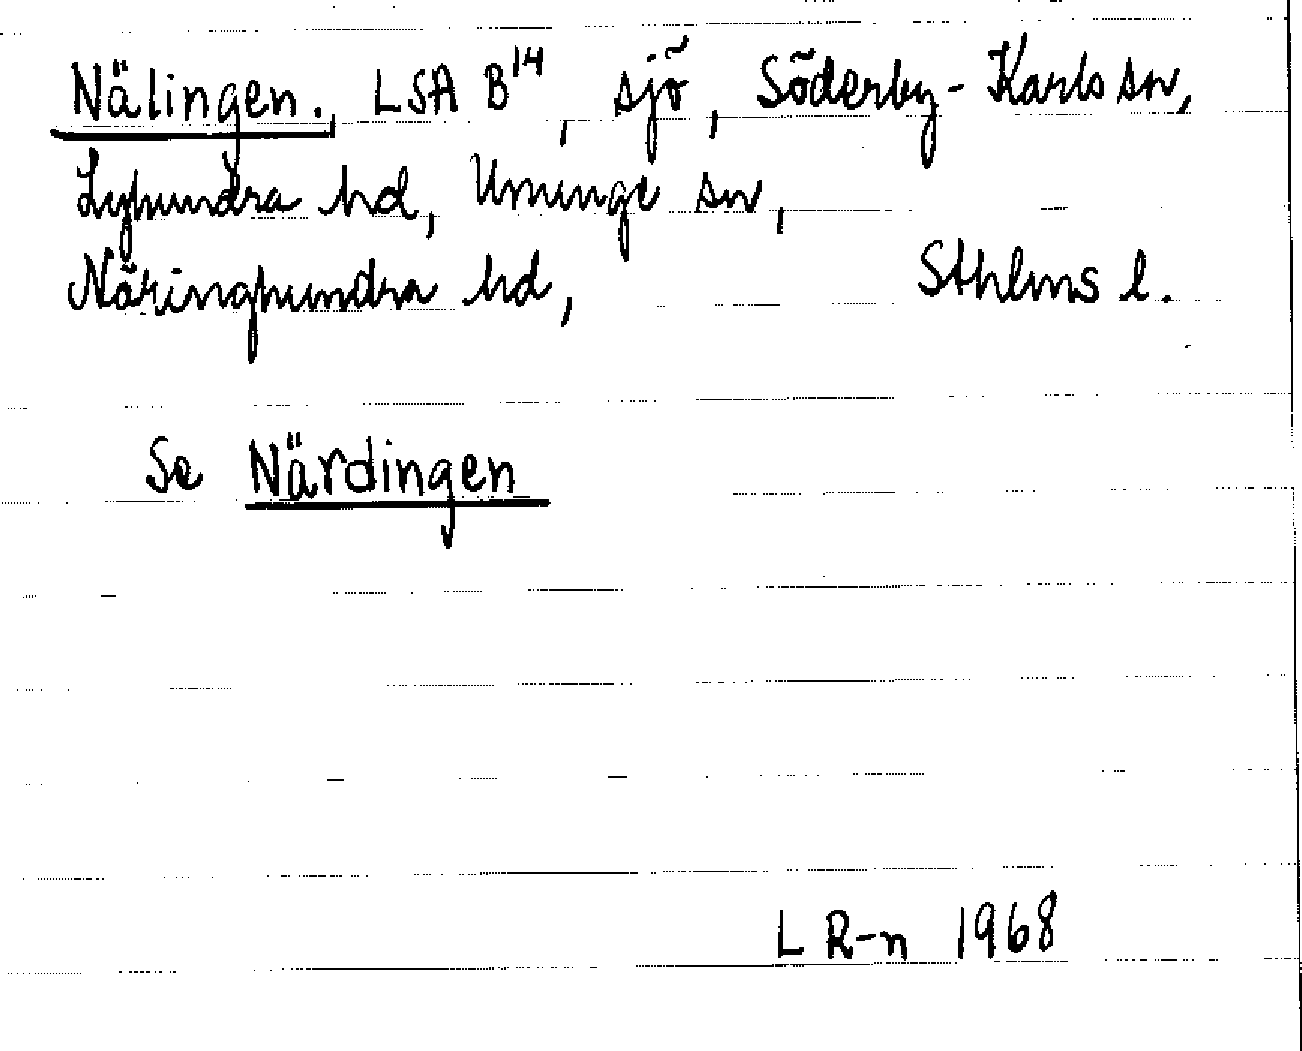 Nälingen., LSA B14, sjö, Söderby-Karls sn,
Lyhundra hd, Uminge sn,
Näringhundra hd, Sthlms l.
Se Närdingen
L R-n 1968